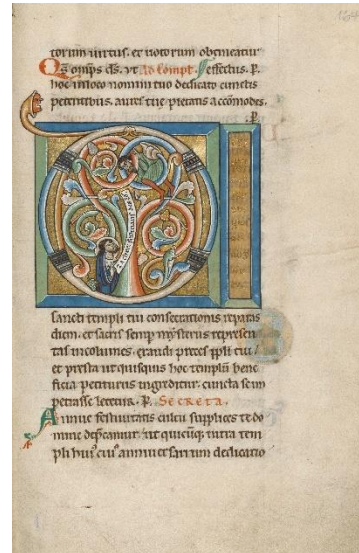 torum uirtus. et uotorum obtineatur
Qs omps ds. ut Ad Compl. effectus. P.
hoc in loco nomini tuo dedicato cunctis
petentibus. aures tue pietatis accōmodes.
P.
sancti templi tui consecrationis reparas
diem. et sacris semp mysteriis represen
tas incolumes. exaudi preces ppli tui.
et presta ut quisquis hoc templū bene
ficia petiturus ingreditur. cuncta se im
petrasse letetur. P. Secreta.
Annue festiuitatis cultu supplices te do
mine dep̄camur. ut quicūq; intra tem
pli hui⁹ cui⁹ anniuersarium dedicatio